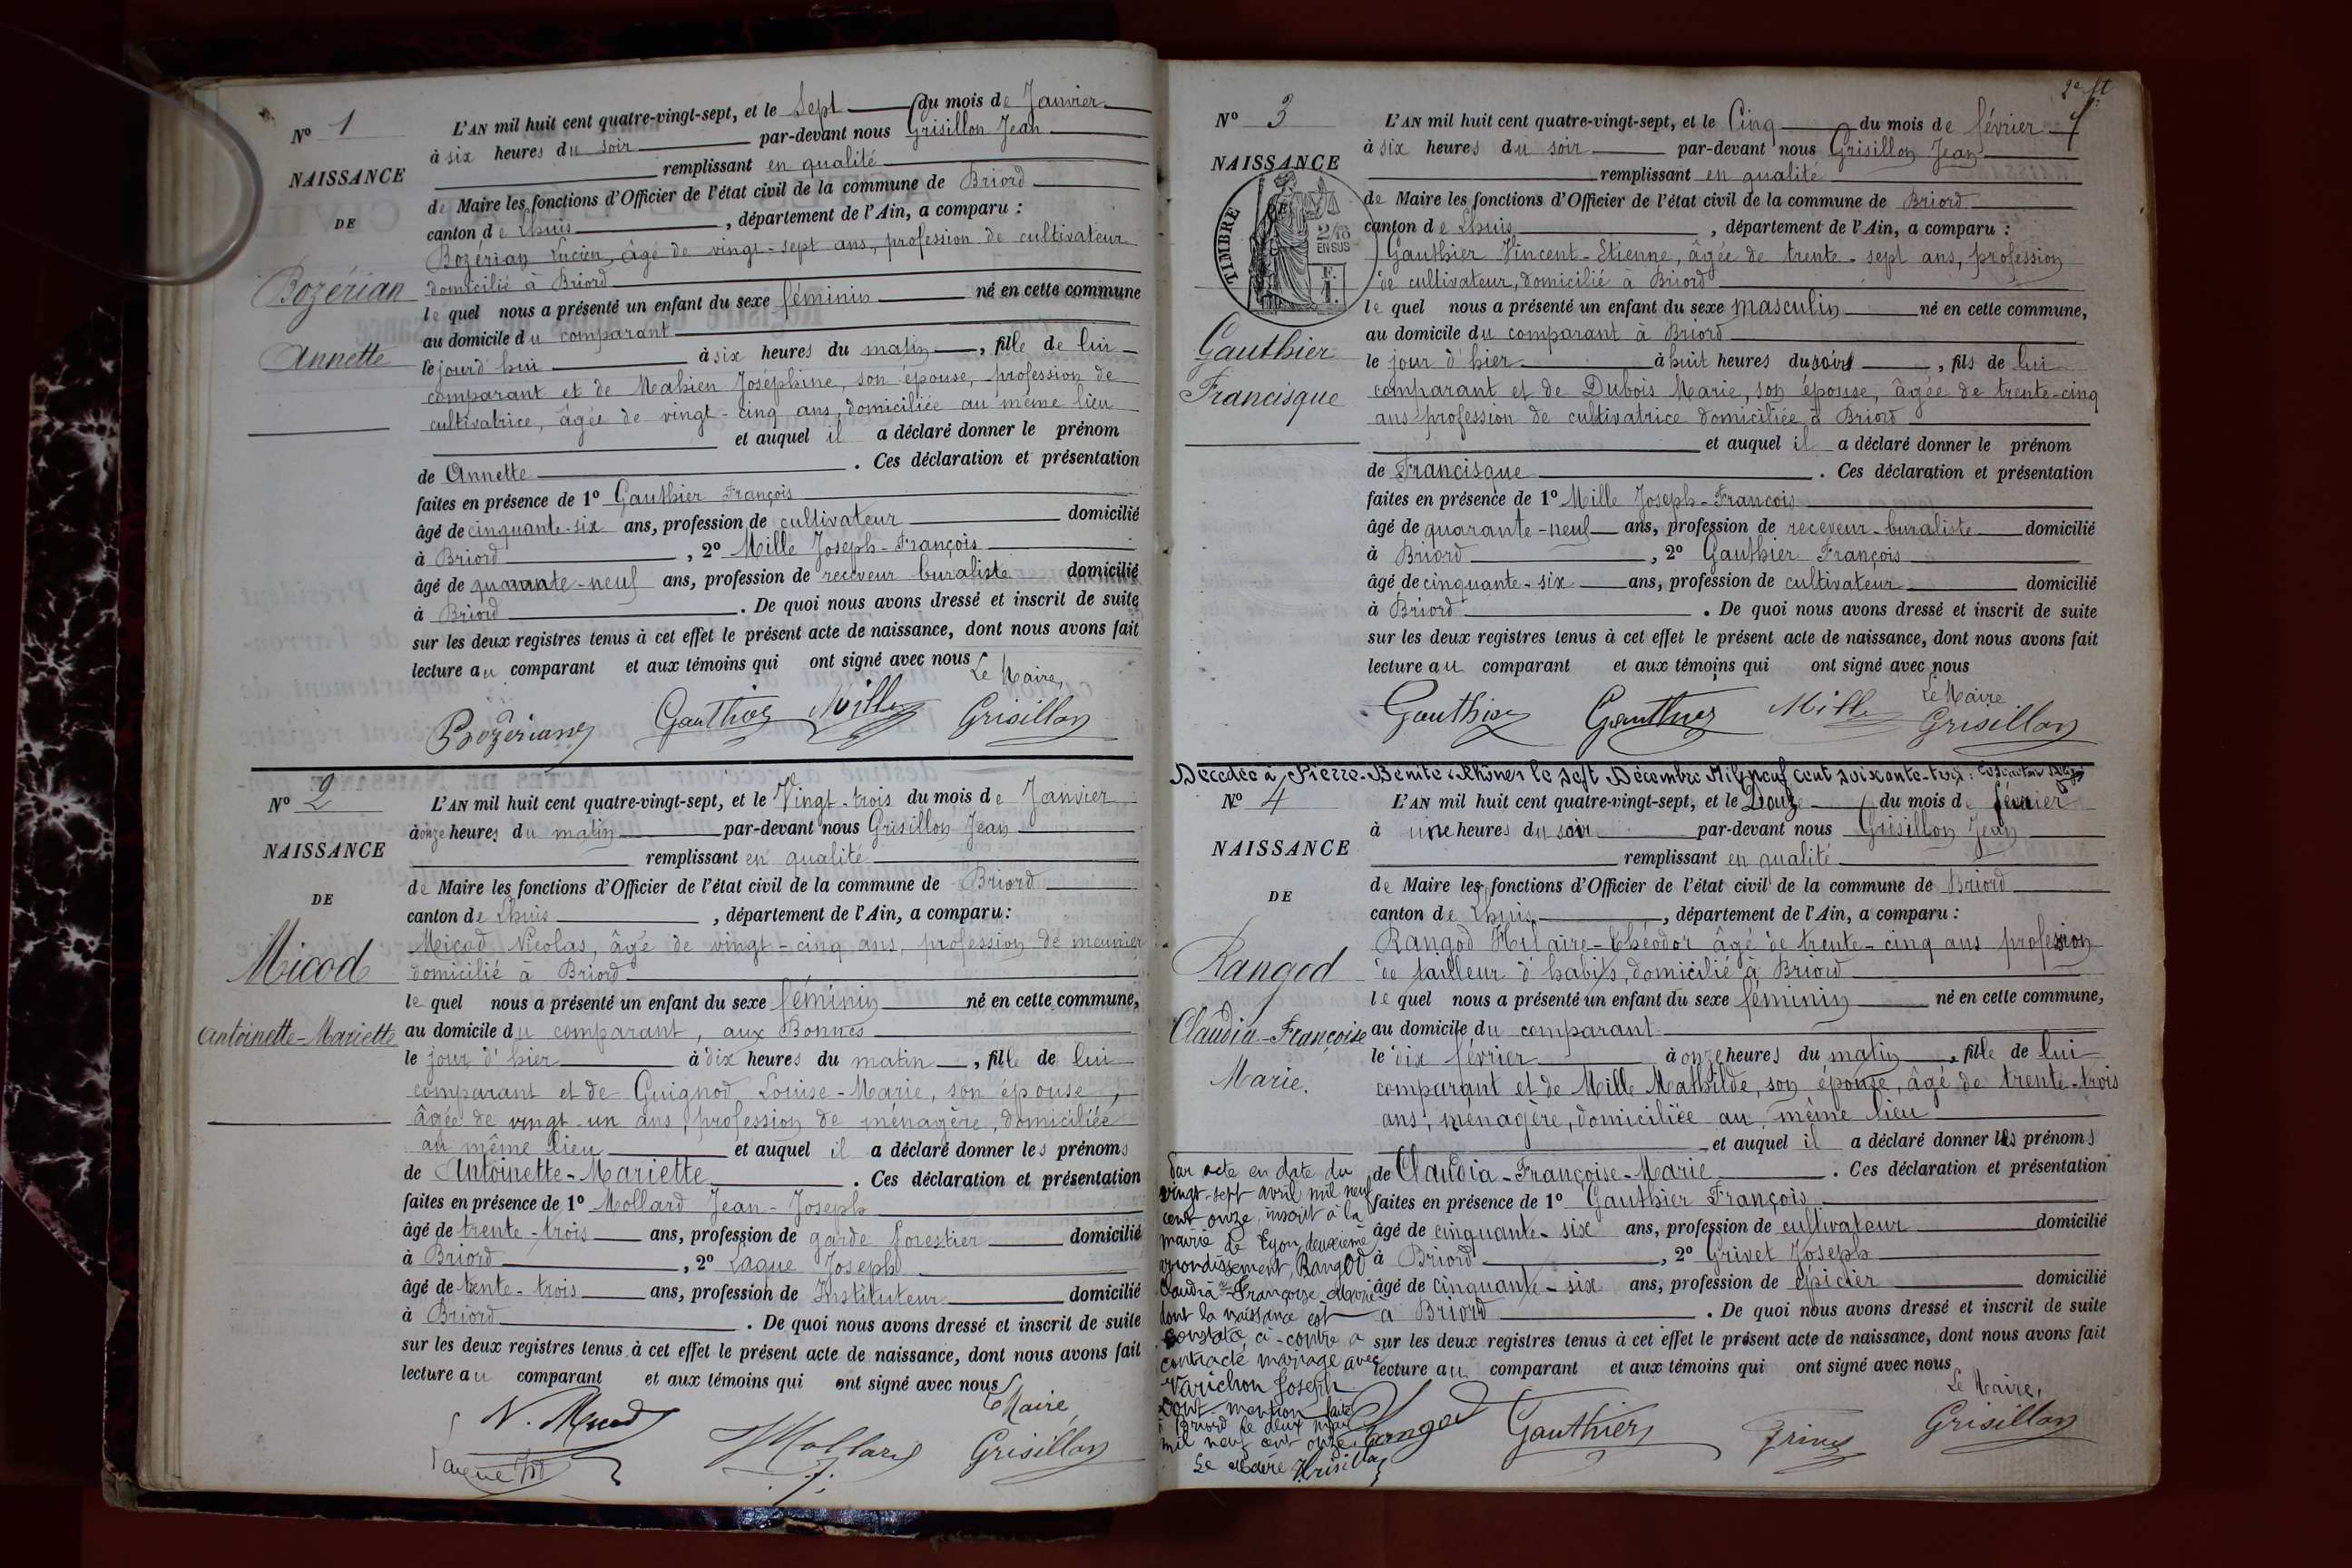 N° 1
NAISSANCE
DE
Bozérian
Annette
L'AN mil huit cent quatre-vingt-sept, et le Sept du mois de Janvier
à six heures du soir par-devant nous Grisillon Jean
remplissant en qualité
de Maire les fonctions d'Officier de l'état civil de la commune de Briord
canton de Lhuis, département de l'Ain, a comparu :
Bozérian Lucien, âgé de vingt-sept ans, profession de cultivateur
domicilié à Briord
lequel nous a présenté un enfant du sexe féminin né en cette commune
au domicile du comparant
le jourd'hui à six heures du matin, fille de lui
comparant et de Mahieu Joséphine, son épouse, profession de
cultivatrice, âgée de vingt-cinq ans, domiciliée au même lieu
et auquel il a déclaré donner le prénom
de Annette. Ces déclaration et présentation
faites en présence de 1° Gauthier François
âgé de cinquante-six ans, profession de cultivateur domicilié
à Briord, 2° Mille Joseph-François
âgé de quarante-neuf ans, profession de receveur buraliste domicilié
à Briord. De quoi nous avons dressé et inscrit de suite
sur les deux registres tenus à cet effet le présent acte de naissance, dont nous avons fait
lecture au comparant et aux témoins qui ont signé avec nous
Le Maire,
Bozérian Gauthier Mille Grisillon
N° 2
NAISSANCE
DE
Micod
Antoinette-Mariette
L'AN mil huit cent quatre-vingt-sept, et le Vingt-trois du mois de Janvier
à onze heures du matin par-devant nous Grisillon Jean
remplissant en qualité
de Maire les fonctions d'Officier de l'état civil de la commune de Briord
canton de Lhuis, département de l'Ain, a comparu :
Micod Nicolas, âgé de vingt-cinq ans, profession de meunier
domicilié à Briord
lequel nous a présenté un enfant du sexe féminin né en cette commune,
au domicile du comparant, aux Bonnes
le jour d'hier à dix heures du matin, fille de lui
comparant et de Guignod Louise-Marie, son épouse,
âgée de vingt-un ans, profession de ménagère, domiciliée
au même lieu et auquel il a déclaré donner les prénoms
de Antoinette-Mariette. Ces déclaration et présentation
faites en présence de 1° Mollard Jean-Joseph
âgé de trente-trois ans, profession de garde forestier domicilié
à Briord, 2° Laque Joseph
âgé de trente-trois ans, profession de Instituteur domicilié
à Briord. De quoi nous avons dressé et inscrit de suite
sur les deux registres tenus à cet effet le présent acte de naissance, dont nous avons fait
lecture au comparant et aux témoins qui ont signé avec nous
Le Maire,
N. Micod Mollard J. Grisillon
2e ft
N° 3
NAISSANCE
TIMBRE
2/10 EN SUS
Gauthier
Francisque
L'AN mil huit cent quatre-vingt-sept, et le Cinq du mois de février
à six heures du soir par-devant nous Grisillon Jean
remplissant en qualité
de Maire les fonctions d'Officier de l'état civil de la commune de Briord
canton de Lhuis, département de l'Ain, a comparu :
Gauthier Vincent-Etienne, âgée de trente-sept ans, profession
de cultivateur, domicilié à Briord
lequel nous a présenté un enfant du sexe masculin né en cette commune,
au domicile du comparant à Briord
le jour d'hier à huit heures du soir, fils de lui
comparant et de Dubois Marie, son épouse, âgée de trente-cinq
ans profession de cultivatrice domiciliée à Briord
et auquel il a déclaré donner le prénom
de Francisque. Ces déclaration et présentation
faites en présence de 1° Mille Joseph-François
âgé de quarante-neuf ans, profession de receveur-buraliste domicilié
à Briord, 2° Gauthier François
âgé de cinquante-six ans, profession de cultivateur domicilié
à Briord. De quoi nous avons dressé et inscrit de suite
sur les deux registres tenus à cet effet le présent acte de naissance, dont nous avons fait
lecture au comparant et aux témoins qui ont signé avec nous
Le Maire
Gauthier Gauthier Mille Grisillon
Décédée à Pierre-Bénite (Rhône) le sept Décembre Mil neuf cent soixante-trois.
N° 4
NAISSANCE
DE
Rangod
Claudia-Françoise
Marie.
L'AN mil huit cent quatre-vingt-sept, et le Douze du mois de février
à une heures du soir par-devant nous Grisillon Jean
remplissant en qualité
de Maire les fonctions d'Officier de l'état civil de la commune de Briord
canton de Lhuis, département de l'Ain, a comparu :
Rangod Hilaire-Théodor âgé de trente-cinq ans profession
de tailleur d'habits, domicilié à Briord
lequel nous a présenté un enfant du sexe féminin né en cette commune,
au domicile du comparant
le dix février à onze heures du matin, fille de lui
comparant et de Mille Mathilde, son épouse, âgé de trente-trois
ans, ménagère, domiciliée au même lieu
et auquel il a déclaré donner les prénoms
de Claudia-Françoise-Marie. Ces déclaration et présentation
faites en présence de 1° Gauthier François
âgé de cinquante-six ans, profession de cultivateur domicilié
à Briord, 2° Grivet Joseph
âgé de cinquante-six ans, profession de épicier domicilié
à Briord. De quoi nous avons dressé et inscrit de suite
sur les deux registres tenus à cet effet le présent acte de naissance, dont nous avons fait
lecture au comparant et aux témoins qui ont signé avec nous
Le Maire,
Rangod Gauthier Grivet Grisillon
Par acte en date du
vingt-sept avril mil neuf
cent onze, inscrit à la
mairie de Lyon deuxième
arrondissement, Rangod
Claudia-Françoise-Marie
dont la naissance est
constatée ci-contre a
contracté mariage avec
Varichon Joseph
Dont mention faite
à Briord le deux mai
mil neuf cent onze.
Le Maire Grisillon